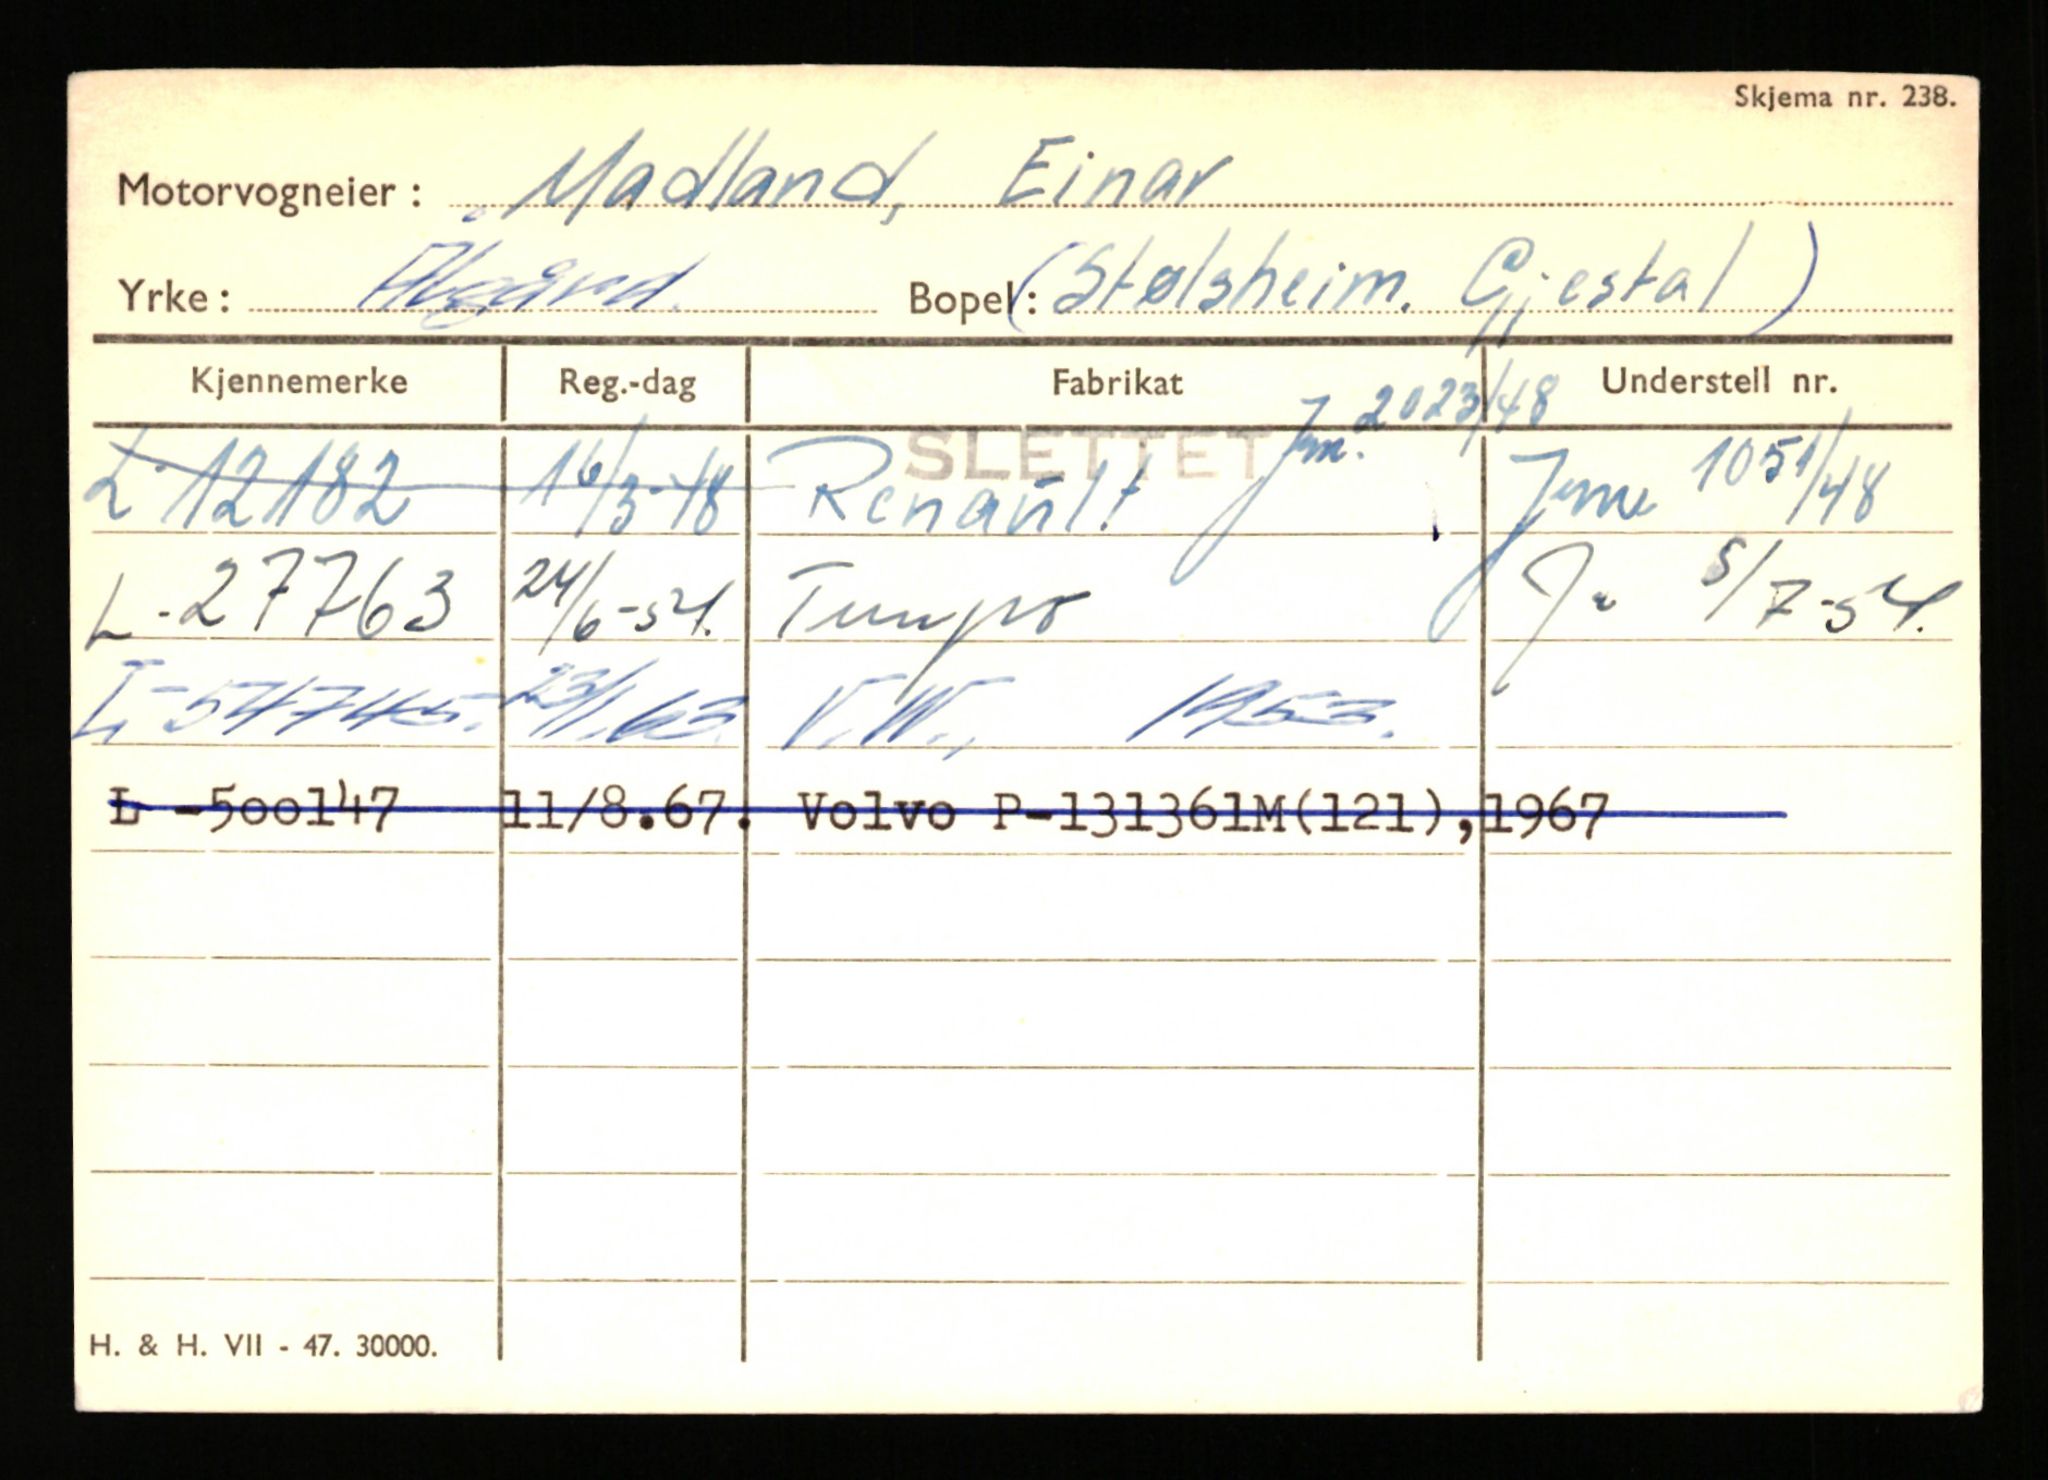 Skjema nr. 238.
Motorvogneier: Madland, Einar
Yrke: Ålgård. Bopel: (Stølsheim. Gjestal)
Kjennemerke Reg.-dag Fabrikat Understell nr.
Jm. 2023/48
L-12182 16/3-48 Renault SLETTET 1051/48
L-27763 24/6-54. Tempo 5/7-54.
L-54745. 23/1.63. V.W., 1953.
L -500147 11/8.67. Volvo P-131361M(121),1967
H. & H. VII - 47. 30000.